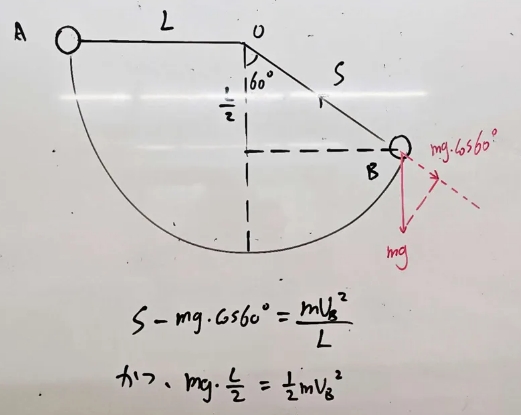 A L O
60° S
L/2
B mg·cos60°
mg
S - mg·cos60° = mV_B²/L
かつ、mg·L/2 = 1/2 mV_B²